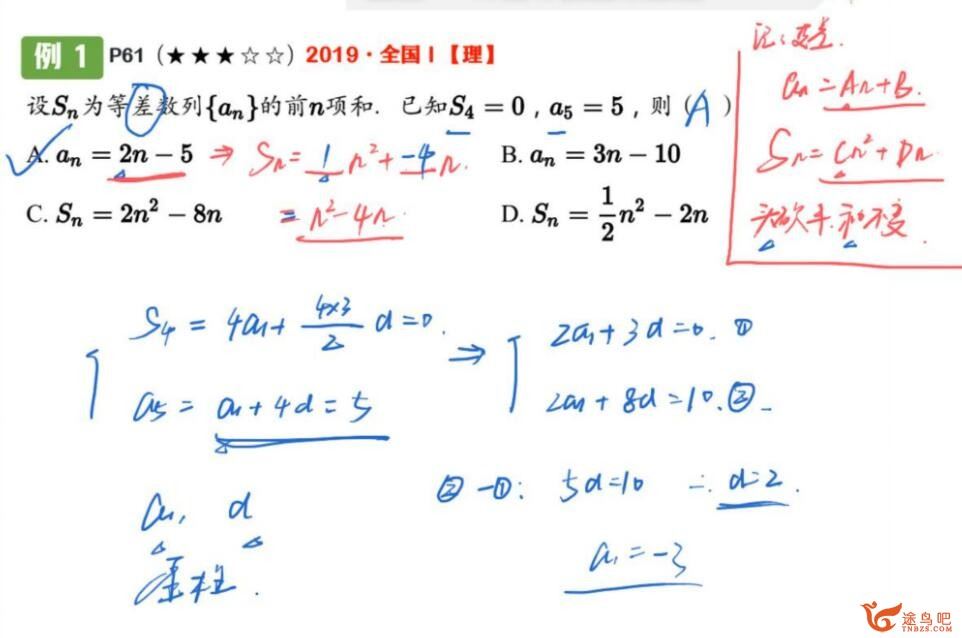 例 1 P61（★★★☆☆）2019·全国Ⅰ【理】
设Sₙ为等差数列{aₙ}的前n项和．已知S₄＝0，a₅＝5，则（A）
A. aₙ＝2n－5 ⇒ Sₙ＝1n²＋－4n.
B. aₙ＝3n－10
C. Sₙ＝2n²－8n ＝n²－4n.
D. Sₙ＝1/2n²－2n
aₙ＝An＋B.
Sₙ＝Cn²＋Dn
砍半.和不变.
S₄＝4a₁＋4×3/2d＝0.
a₅＝a₁＋4d＝5
⇒
2a₁＋3d＝0. ①
2a₁＋8d＝10.②
②－①：5d＝10 ∴d＝2.
a₁＝－3
a₁, d
途鸟吧
TNBZS.COM